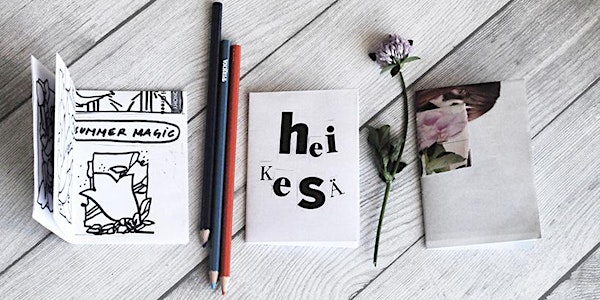 SUMMER MAGIC
hei
KesÄ